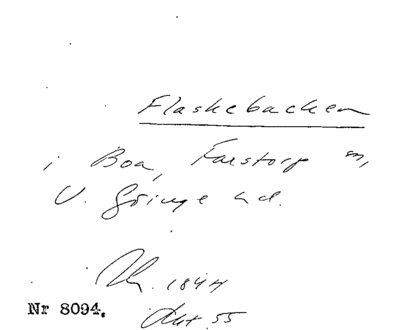 Flaskebacken
i Boa, Farstorp sn,
V. Göinge hd.
1844
Nr 8094.
Akt 55